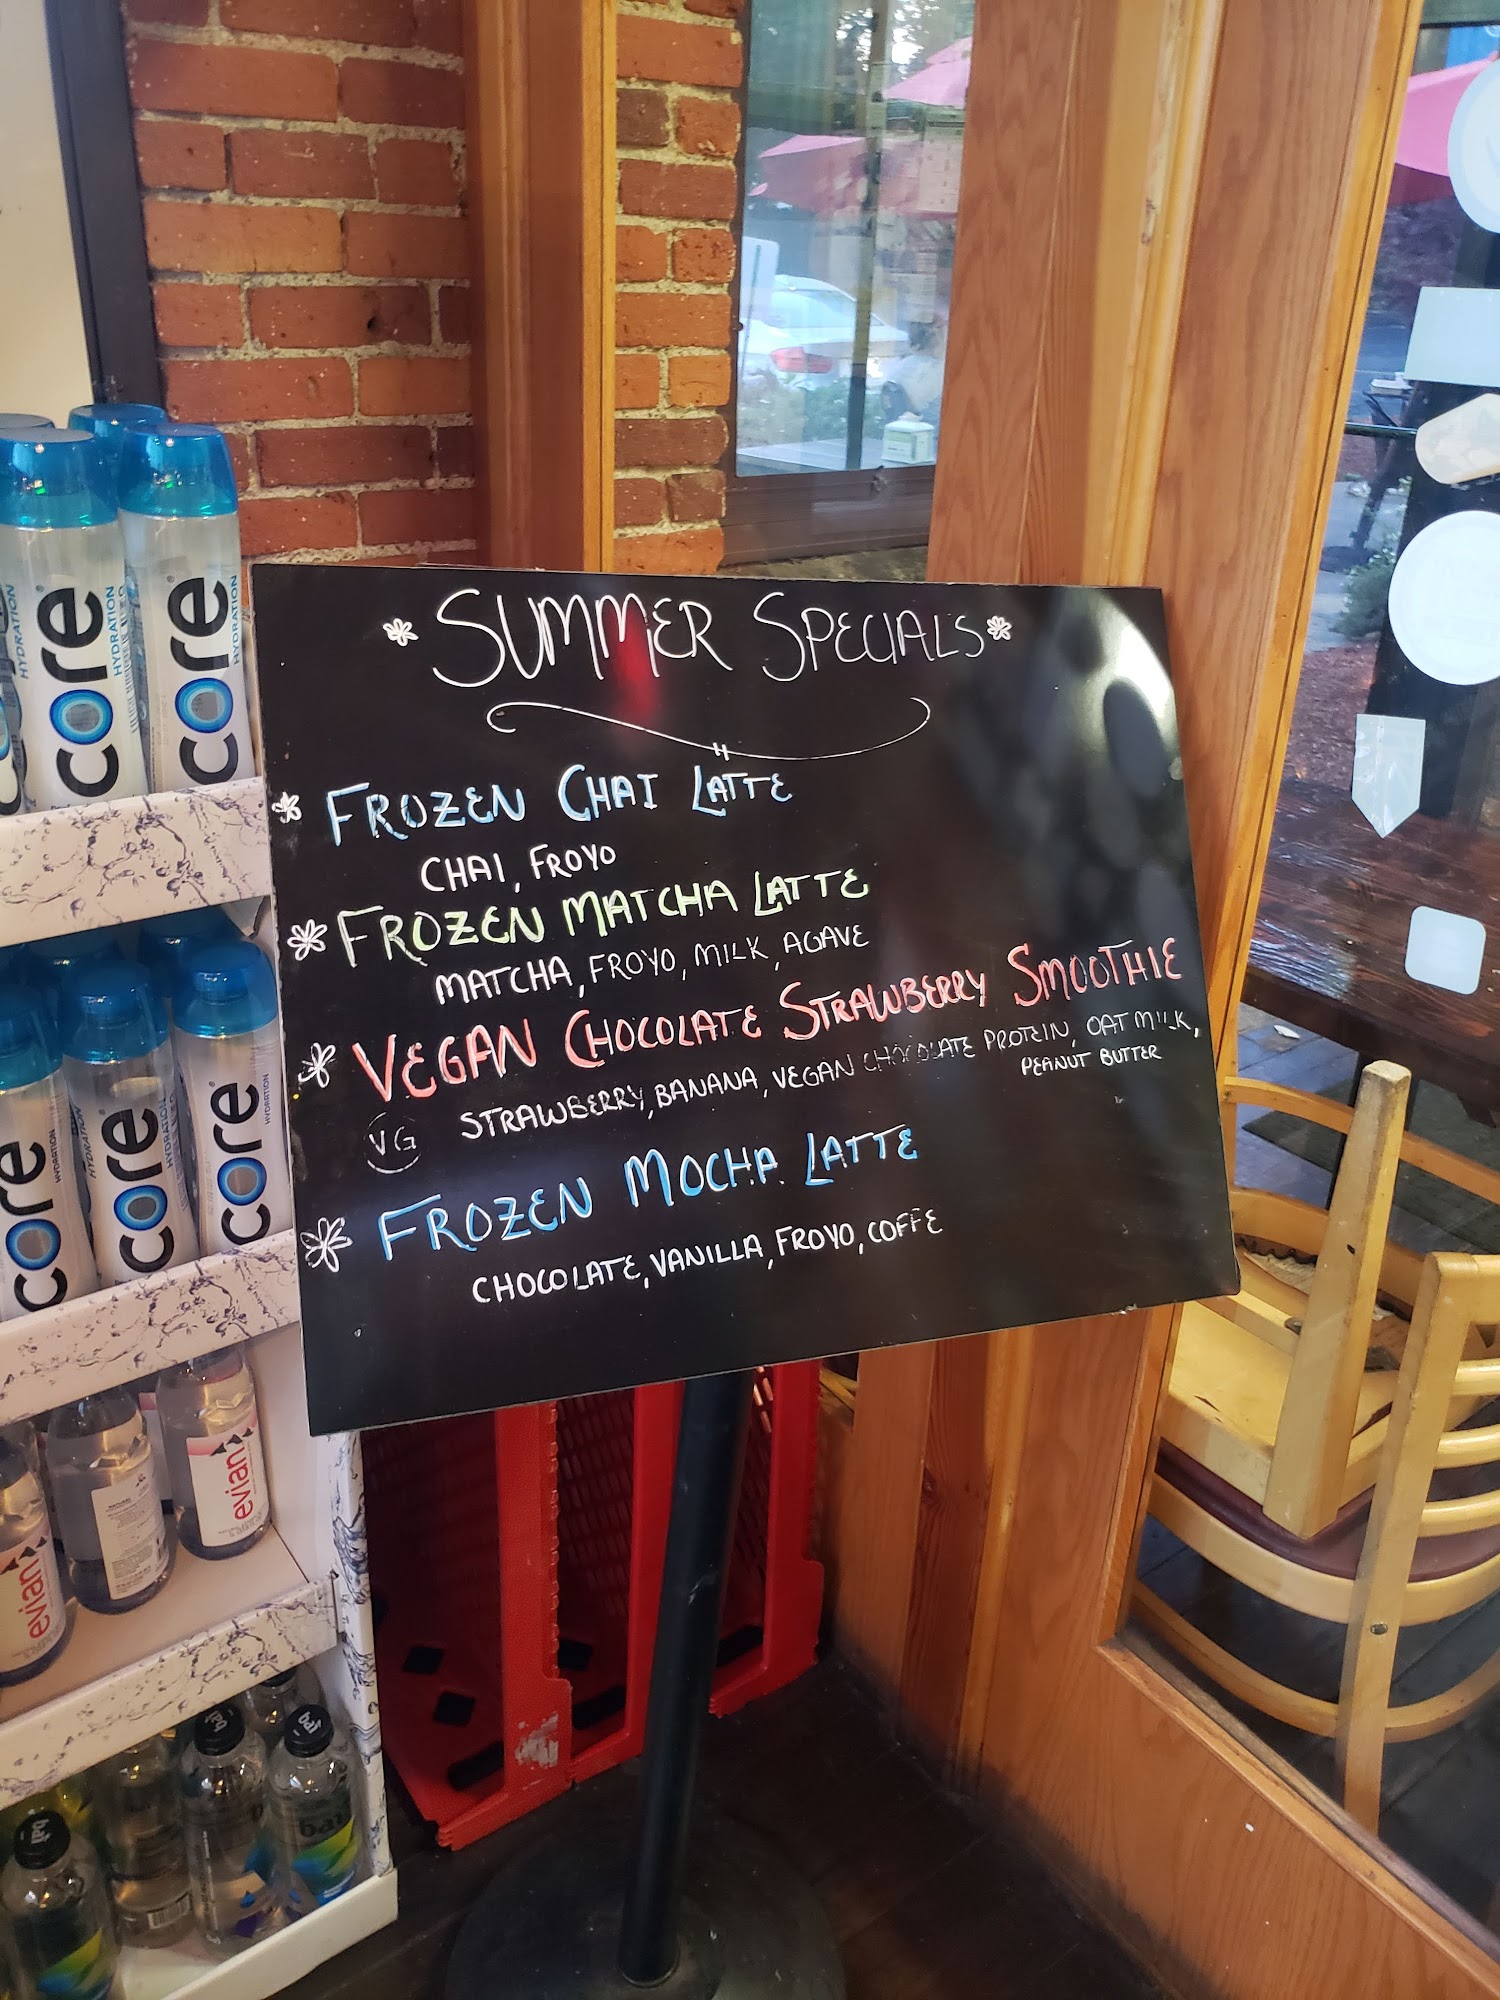 SUMMER SPECIALS
FROZEN CHAI LATTE
CHAI, FROYO
FROZEN MATCHA LATTE
MATCHA, FROYO, MILK, AGAVE
VEGAN CHOCOLATE STRAWBERRY SMOOTHIE
VG STRAWBERRY, BANANA, VEGAN CHOCOLATE PROTEIN, OAT MILK,
PEANUT BUTTER
FROZEN MOCHA LATTE
CHOCOLATE, VANILLA, FROYO, COFFE
core HYDRATION
core HYDRATION
core HYDRATION
core HYDRATION
core HYDRATION
evian
evian
bai
bai
bai
bai